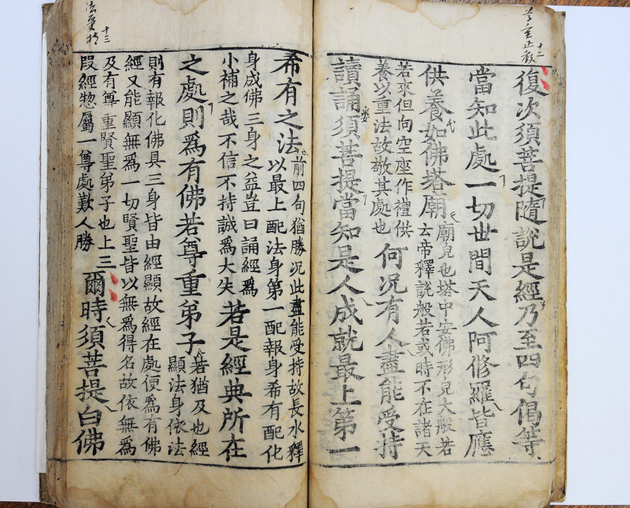 復次須菩提隨說是經乃至四句偈等
當知此處一切世間天人阿修羅皆應
供養如佛塔廟廟皃也塔中安佛形皃大般若
云帝釋說般若或時不在諸天
若來但向空座作禮供
養以重法故敬其處也何況有人盡能受持
讀誦須菩提當知是人成就最上第一
希有之法前四句猶勝況此盡能受持故長水釋
以最上配法身第一配報身希有配化
身成佛三身之益豈曰誦經爲
小補之哉不信不持誠爲大失若是經典所在
之處則爲有佛若尊重弟子若猶及也經
顯法身依法
則有報化佛具三身皆由經顯故經在處便爲有佛
經又能顯無爲一切賢聖皆以無爲得名故依無爲
及有尊重賢聖弟子也上三
段經惣屬一尊處歎人勝爾時須菩提白佛
十二
十三